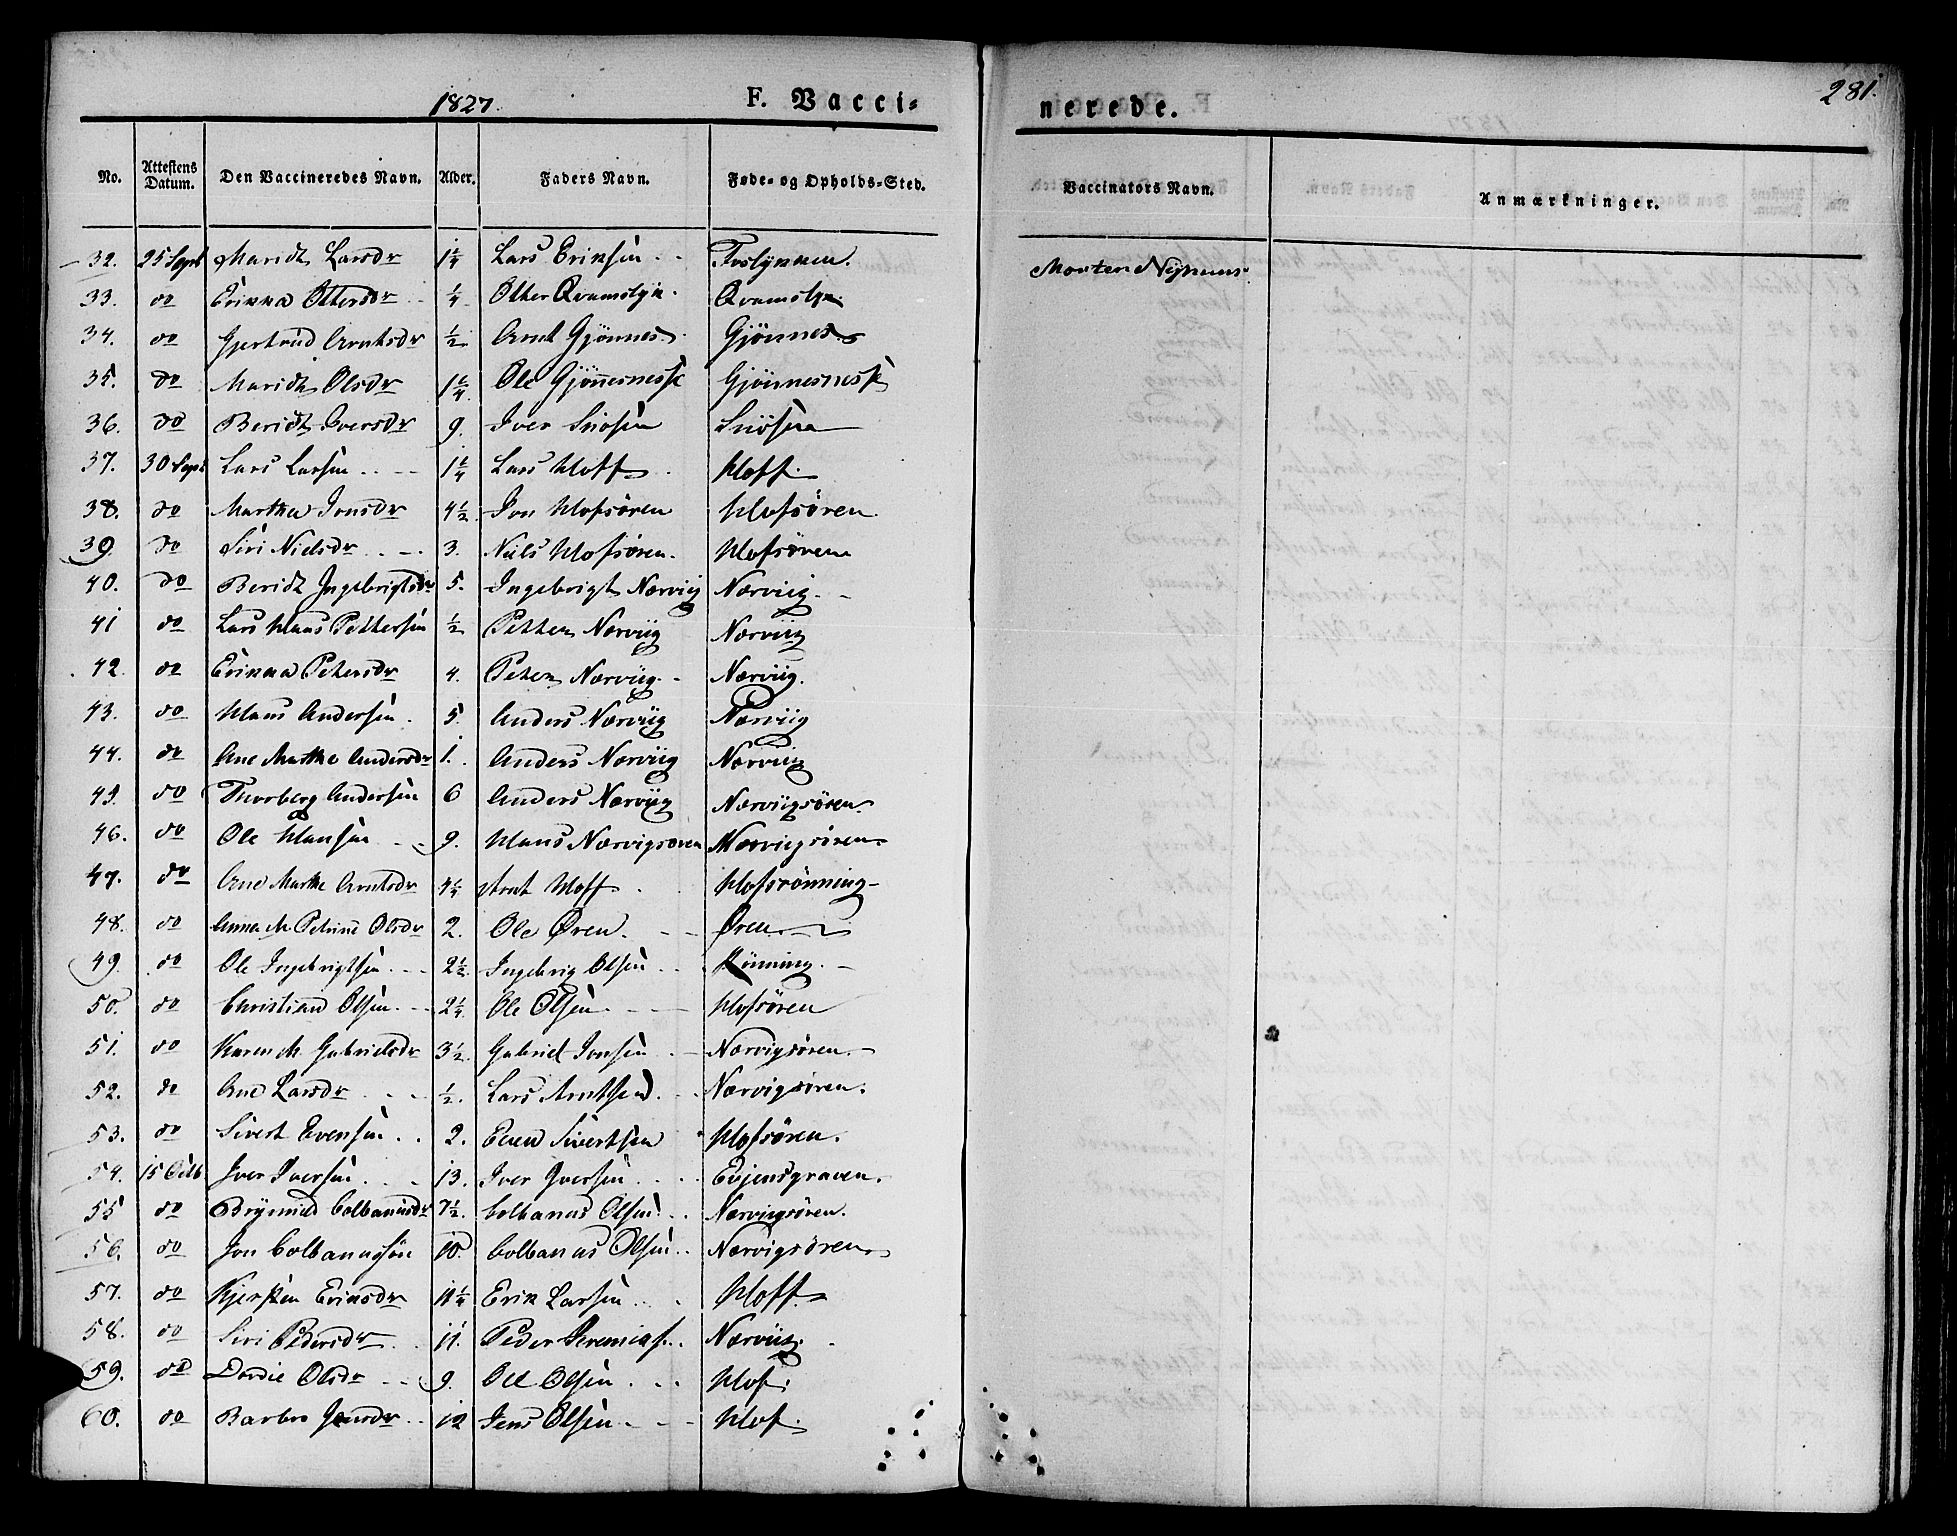 1827. F. Vacci=
nerede. 281.
No. Attestens Datum. Den Vaccineredes Navn. Alder. Faders Navn. Føde- og Opholds-Sted. Vaccinators Navn. Anmærkninger.
32. 25 Sept Maridt Larsdr 1 1/4 Lars Eriksen Foslynnen. Morten
33. do Erikka Ottersdr 1/4 Otter Qvamslyk. Qvamslyk.
34. do Gjertrud Arntsdr 1/2 Arnt Gjönnes. Gjönnes
35. do Maridt Olsdr 1 1/4 Ole Gjönnesness Gjönnesness
36. do Beridt Iversdr 9. Iver Snösen Snösen
37. 30 Sept Lars Larsen 1 1/4 Lars Hoff Hoff.
38. do Martha Jonsdr 4 1/2 Jon Hofsören Hofsören
39. do Siri Nielsdr 3. Niels Hofsören. Hofsören
40. do Beridt Ingebrigtsdr 5. Ingebrigt Norviig Norviig.
41 do Lars Hans Pettersen 1/2 Petter Norviig Norviig
42. do Erikka Petersdr 4. Peter Norviig. Norviig.
43. do Hans Andersen. 5. Anders Norviig Norviig
44. do Ane Marthe Andersdr 1. Anders Norviig Norviig
45. do Thorberg Andersen 6 Anders Norviig Norviigsören.
46. do Ole Hansen 9. Hans Norvigsøren Norvigsören.
47. do Ane Marthe Arntsdr 4 1/4 Arnt Hoff Hofsrönning
48. do Anna M. Petrine Olsdr 2. Ole Øren. Øren
49. do Ole Ingebrigtsen 2 1/2. Ingebrig Olsen Rönning.
50. do Christian Olsen 2 1/4. Ole Olsen. Hofsören
51. do Karen M. Gabrielsdr 3 1/2. Gabriel Jonsen Norvigsören.
52. do Ane Larsdr 1/2. Lars Arntsen. Norvigsören.
53. do Sivert Evensen 2. Even Sivertsen Hofsören.
54. 15 Octb. Iver Iversen 13. Iver Iversen Evjensgraven.
55 do Colbanusdr 7 1/2. Colbanus Olsen. Norvigsören.
56. do Jon Colbanussön 10. Colbanus Olsen Norvigsören
57. do Kjersten Eriksdr 11 1/4 Erik Larsen Hoff.
58. do Siri Pedersdr 11. Peder Jeremias. Norviig.
59. do Dordie Olsdr 9. Ole Olsen. Hof.
60. do Barbro Jensdr 12 Jens Olsen Hof.